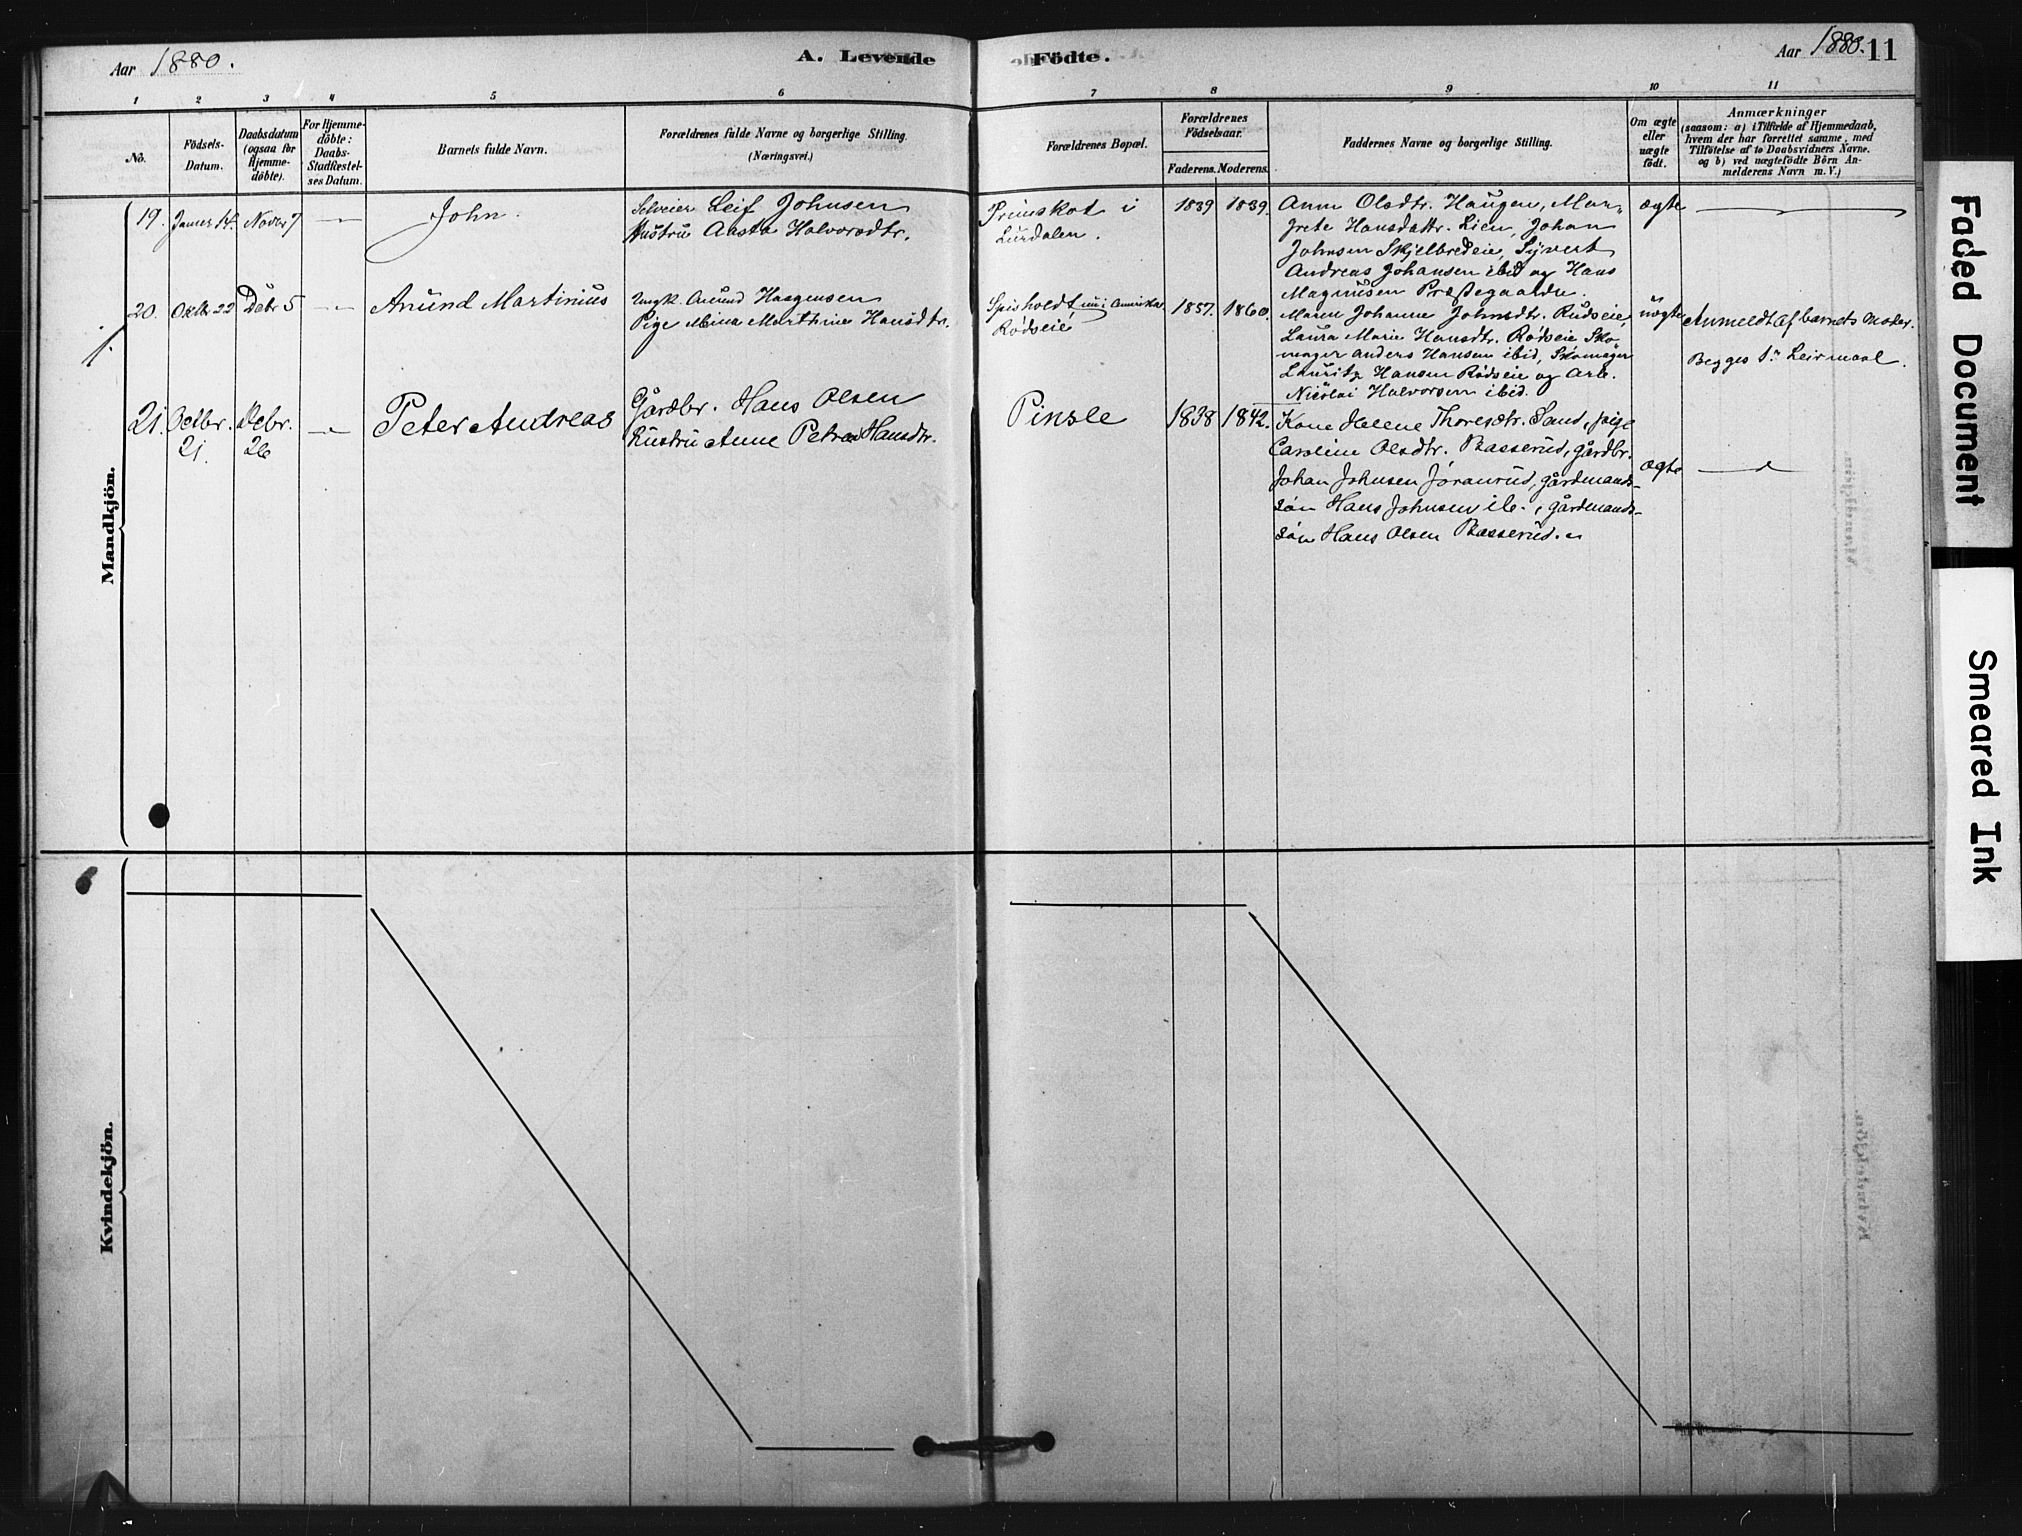 Aar 1880.
A. Levende
Födte.
Aar 1880.
11
1
2
3
4
5
6
7
8
9
10
11
No.
Födsels-
Datum.
Daabsdatum
(ogsaa for
Hjemme-
döbte).
For Hjemme-
döbte:
Daabs-
Stadfæstel-
ses Datum.
Barnets fulde Navn.
Forældrenes fulde Navne og borgerlige Stilling.
(Næringsvei.)
Forældrenes Bopæl.
Forældrenes
Födselsaar.
Faderens.
Moderens.
Faddernes Navne og borgerlige Stilling.
Om ægte
eller
uægte
födt.
Anmærkninger
(saasom: a) i Tilfælde af Hjemmedaab,
hvem der har forrettet samme, med
Tilföielse af to Daabsvidners Navne.
og b) ved uægtefödte Börn An-
melderens Navn m. V.)
Mandkjön.
19. Januar 14. Novbr 7 John.
Selveier Leif Johnsen
Hustru Aasta Halvorsdtr.
i
Lurdalen.
1839 1839.
Anne Olsdtr. Haugen, Mar-
grete Hansdattr. Lien, Johan
Johnsen Skjelbredeie, Syvert
Andreas Johansen ibid og Hans
Magnusen Præstegaarden.
ægte
20. Oktbr 22 Debr 5 Anund Martinius
Ungk. Anund Haagensen
Pige Mina Marthine Hansdtr.
Spisholdt nu i Amerika.
Rødseie
1857. 1860.
Maren Johanne Johnsdtr. Rudseie,
Laura Marie Hansdtr. Rødseie Sko-
mager Anders Hansen ibid, Skomager
Lauritz Hansen Rødseie og Arb.
Nicolai Halvorsen ibid.
uægte
Anmeldt af barnets Moder.
Begges 1ste Leirmaal.
21. Octbr. 21. Debr. 26 Peter Andreas
Gårdbr. Hans Olsen
Hustru Anne Petrea Hansdtr.
Pinsle
1838 1842.
Kone Helene Thoresdtr. Sand, pige
Caroline Olsdtr. Basserud, gårdbr.
Johan Johnsen Joranrud, gårdmands-
søn Hans Johnsen ib., gårdmands-
søn Hans Olsen Basserud.
ægte
Kvindekjön.
Faded Document
Smeared Ink